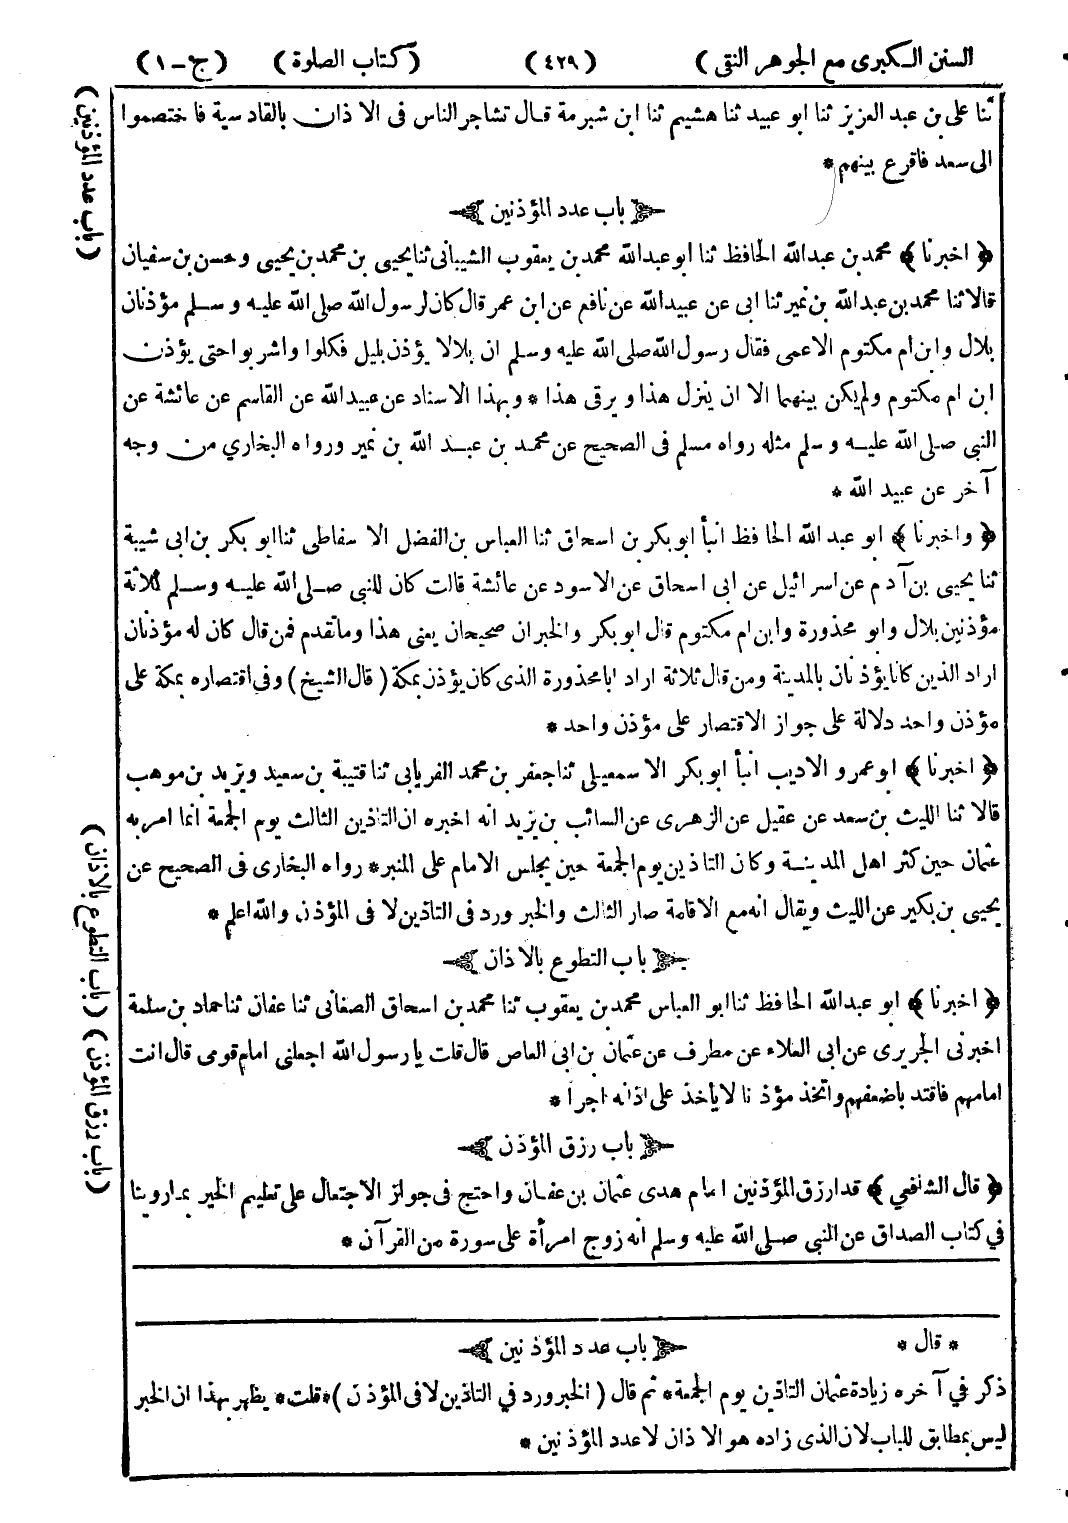 السنن الكبرى مع الجوهر النقى ) ( ٤٢٩ ) ( كتاب الصلوة ) ( ج - ١ )
ثنا على بن عبد العزيز ثنا ابو عبيد ثنا هشيم ثنا ابن شبرمة قال تشاجر الناس فى الاذان بالقادسية فاختصموا
الى سعد فاقرع بينهم *
باب عدد المؤذنين
( باب عدد المؤذنين )
﴿ اخبرنا ﴾ محمد بن عبدالله الحافظ ثنا ابو عبدالله محمد بن يعقوب الشيبانى ثنا يحيى بن محمد بن يحيى وحسن بن سفيان
قالا ثنا محمد بن عبدالله بن نمير ثنا ابى عن عبيدالله عن نافع عن ابن عمر قال كان لرسول الله صلى الله عليه وسلم مؤذنان
بلال وابن ام مكتوم الاعمى فقال رسول الله صلى الله عليه وسلم ان بلالا يؤذن بليل فكلوا واشربوا حتى يؤذن
ابن ام مكتوم ولم يكن بينهما الا ان ينزل هذا ويرقى هذا * وبهذا الاسناد عن عبيدالله عن القاسم عن عائشة عن
النبى صلى الله عليه وسلم مثله رواه مسلم فى الصحيح عن محمد بن عبد الله بن نمير ورواه البخاري من وجه
آخر عن عبيد الله *
﴿ واخبرنا ﴾ ابو عبد الله الحافظ انبأ ابو بكر بن اسحاق ثنا العباس بن الفضل الاسفاطى ثنا ابو بكر بن ابى شيبة
ثنا يحيى بن آدم عن اسرائيل عن ابى اسحاق عن الاسود عن عائشة قالت كان للنبى صلى الله عليه وسلم ثلاثة
مؤذنين بلال وابو محذورة وابن ام مكتوم قال ابو بكر والخبران صحيحان يعنى هذا وما تقدم فمن قال كان له مؤذنان
اراد الذين كانا يؤذنان بالمدينة ومن قال ثلاثة اراد ابا محذورة الذى كان يؤذن بمكة ( قال الشيخ ) وفى اقتصاره بمكة على
مؤذن واحد دلالة على جواز الاقتصار على مؤذن واحد *
﴿ اخبرنا ﴾ ابو عمرو الاديب انبأ ابو بكر الاسمعيلى ثنا جعفر بن محمد الفريابى ثنا قتيبة بن سعيد ويزيد بن موهب
قالا ثنا الليث بن سعد عن عقيل عن الزهرى عن السائب بن يزيد انه اخبره ان التاذين الثالث يوم الجمعة انما امر به
عثمان حين كثر اهل المدينة وكان التاذين يوم الجمعة حين يجلس الامام على المنبر * رواه البخارى فى الصحيح عن
يحيى بن بكير عن الليث ويقال انه مع الاقامة صار الثالث والخبر ورد فى التاذين لا فى المؤذن والله اعلم *
باب التطوع بالاذان
( باب التطوع بالاذان )
﴿ اخبرنا ﴾ ابو عبدالله الحافظ ثنا ابو العباس محمد بن يعقوب ثنا محمد بن اسحاق الصغانى ثنا عفان ثنا حماد بن سلمة
اخبرنى الجريرى عن ابى العلاء عن مطرف عن عثمان بن ابى العاص قال قلت يا رسول الله اجعلنى امام قومى قال انت
امامهم فاقتد باضعفهم واتخذ مؤذنا لا يأخذ على اذانه اجرا *
باب رزق المؤذن
( باب رزق المؤذن )
﴿ قال الشافعي ﴾ قد ارزق المؤذنين امام هدى عثمان بن عفان واحتج فى جواز الاجتعال على تعليم الخير بما روينا
في كتاب الصداق عن النبى صلى الله عليه وسلم انه زوج امرأة على سورة من القرآن *
* قال * باب عدد المؤذنين
ذكر في آخره زيادة عثمان التاذين يوم الجمعة * ثم قال ( الخبر ورد في التاذين لا فى المؤذن ) * قلت * يظهر بهذا ان الخبر
ليس بمطابق للباب لان الذى زاده هو الاذان لا عدد المؤذنين *